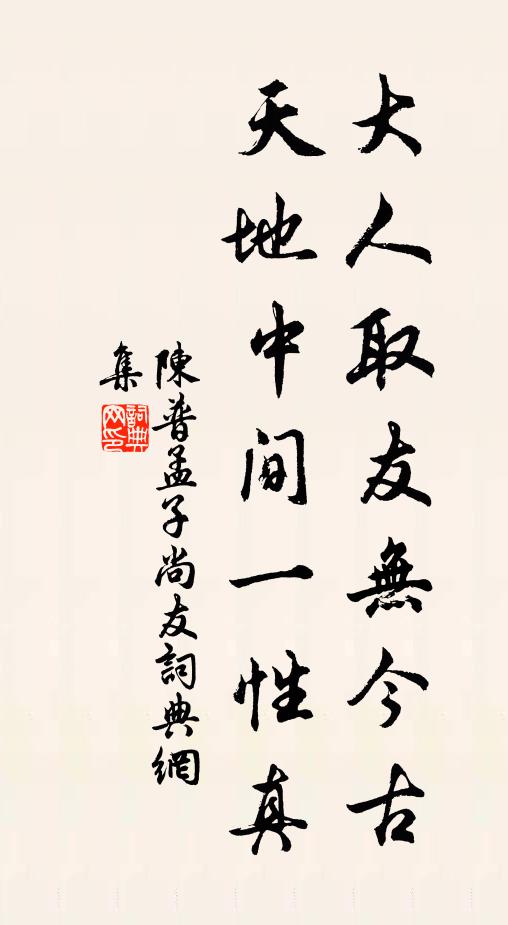 大人取友無今古
天地中間一性真
陳普孟子尚友詞典網
集
詞典网印